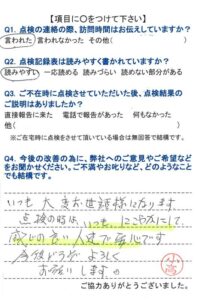 【項目に○をつけて下さい】
Q1. 点検の連絡の際、訪問時間はお伝えしていますか？
言われた 言われなかった その他( )
Q2. 点検記録表は読みやすく書かれていますか？
読みやすい 一応読める 読みづらい 読めない部分がある
Q3. ご不在時に点検させていただいた後、点検結果の
ご説明はありましたか？
直接報告に来た 電話で報告があった 何もなかった
その他( )
※ご在宅時に点検をさせて頂いている場合は無回答で結構です。
Q4. 今後の改善の為に、弊社へのご意見やご希望などを
お聞かせください。ご不満やお叱りなど、どのようなこと
でも結構です。
いつも大変お世話様になります
点検の時は、いつもにこやかにして
感じの良い人達で安心です
今後どうぞよろしく
お願いします。
ご協力ありがとうございました。